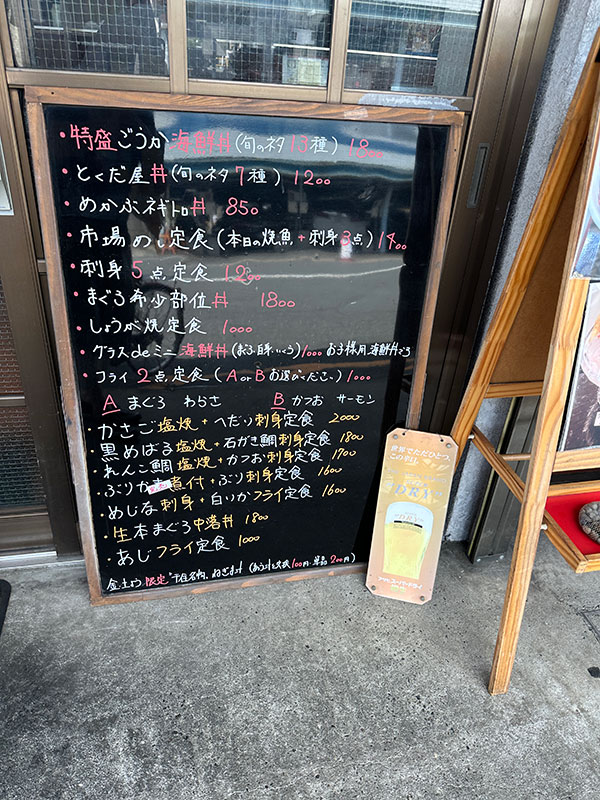 ・特盛ごうか海鮮丼(旬のネタ13種) 1800
・とくだ屋丼(旬のネタ7種) 1200
・めかぶネギトロ丼 850
・市場めし定食(本日の焼魚+刺身3点)1400
・刺身5点定食 1200
・まぐろ希少部位丼 1800
・しょうが焼定食 1000
・グラスdeミニ海鮮丼 1000 お子様用海鮮丼
・フライ2点定食(AorBお選びください)1000
A まぐろ わらさ B かつお サーモン
・かさご塩焼+へだい刺身定食 2000
・黒めばる塩焼+石がき鯛刺身定食 1800
・れんこ鯛塩焼+かつお刺身定食 1700
・ぶりかま煮付+ぶり刺身定食 1600
・めじな刺身+白いかフライ定食 1600
・生本まぐろ中落丼 1800
・あじフライ定食 1000
限定 100円・単品200円
世界でただひとつ、
この辛口。
DRY
アサヒスーパードライ